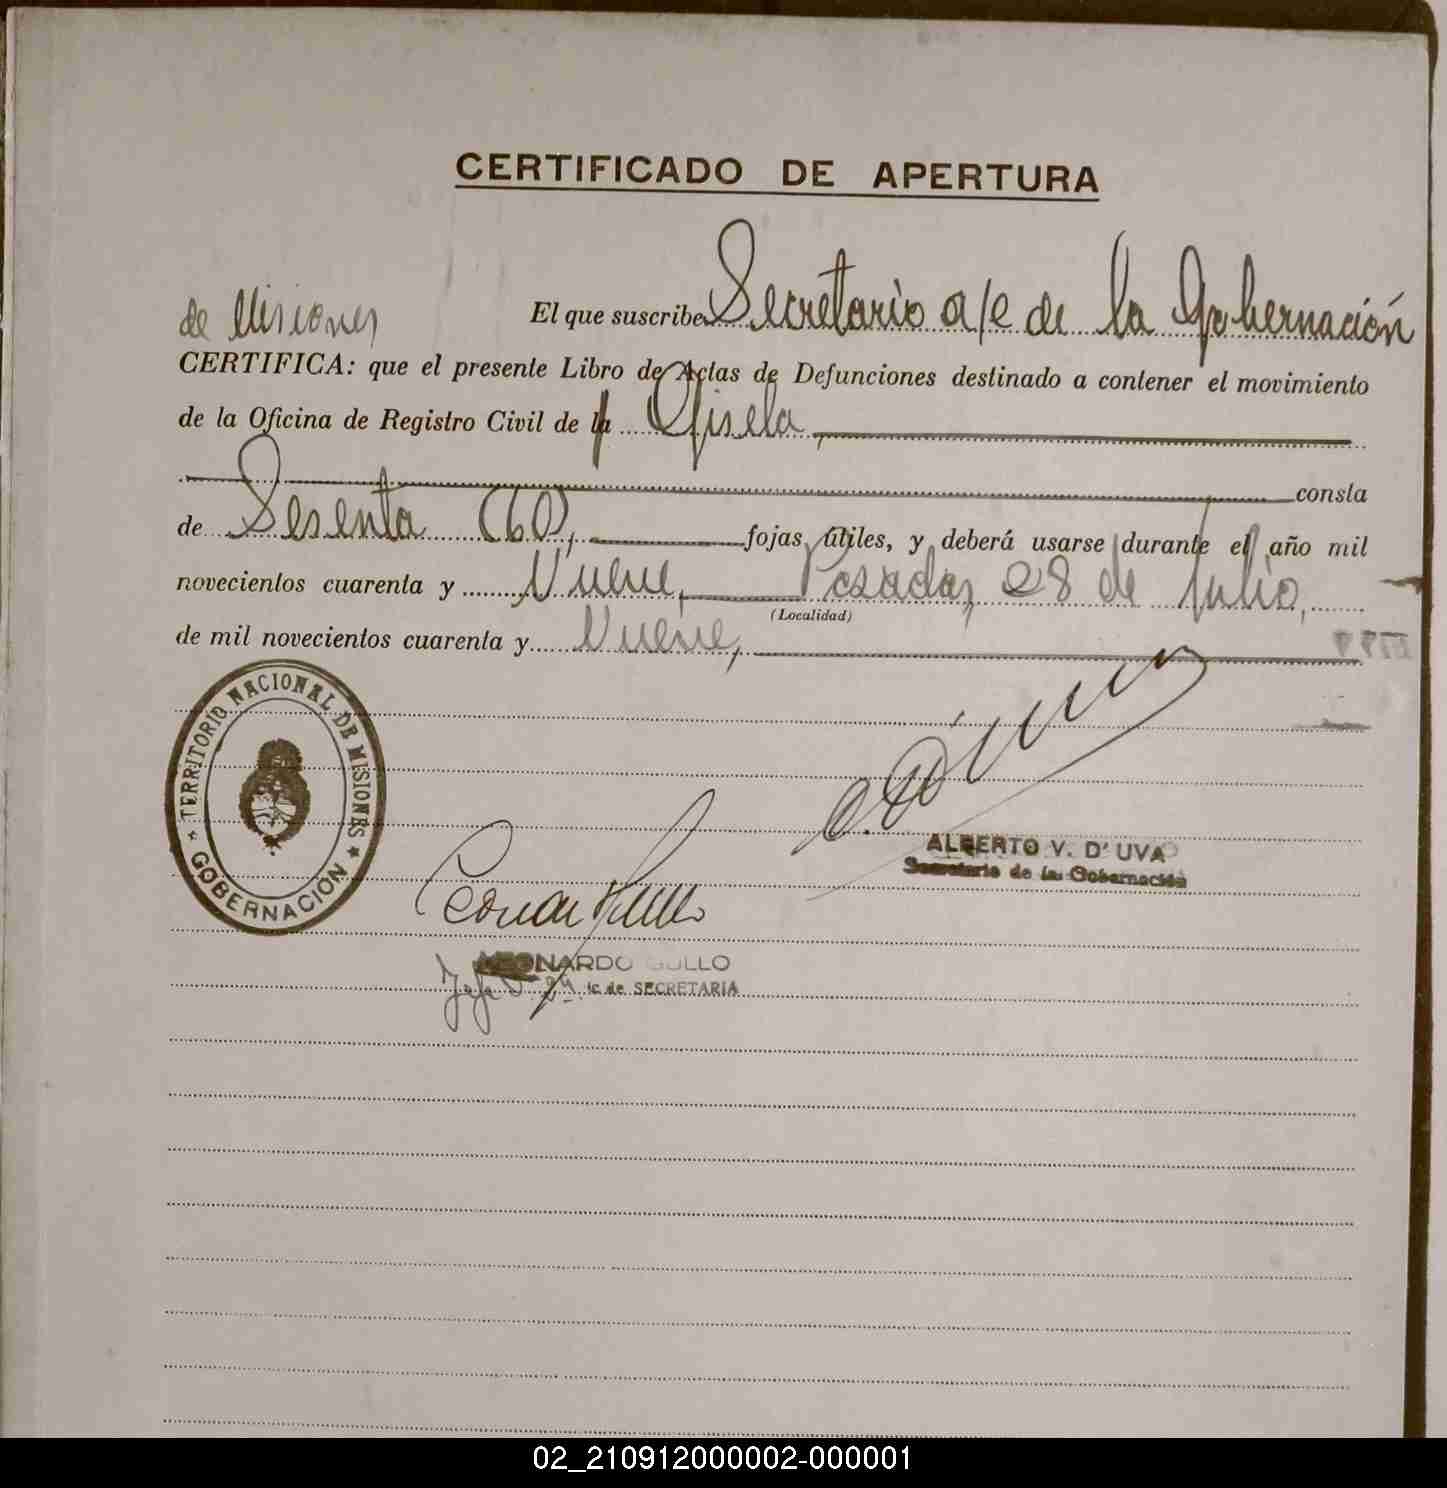 CERTIFICADO DE APERTURA
El que suscribe Secretario a/c de la Gobernación
de Misiones
CERTIFICA: que el presente Libro de Actas de Defunciones destinado a contener el movimiento
de la Oficina de Registro Civil de la Gisela,
consta
de Sesenta (60), fojas útiles, y deberá usarse durante el año mil
novecientos cuarenta y Nueve, Posadas, 28 de Julio,
(Localidad)
de mil novecientos cuarenta y Nueve,
TERRITORIO NACIONAL DE MISIONES
GOBERNACIÓN
ALBERTO V. D'UVA
Secretario de la Gobernación
LEONARDO GULLO
Jefe de SECRETARIA
02_210912000002-000001